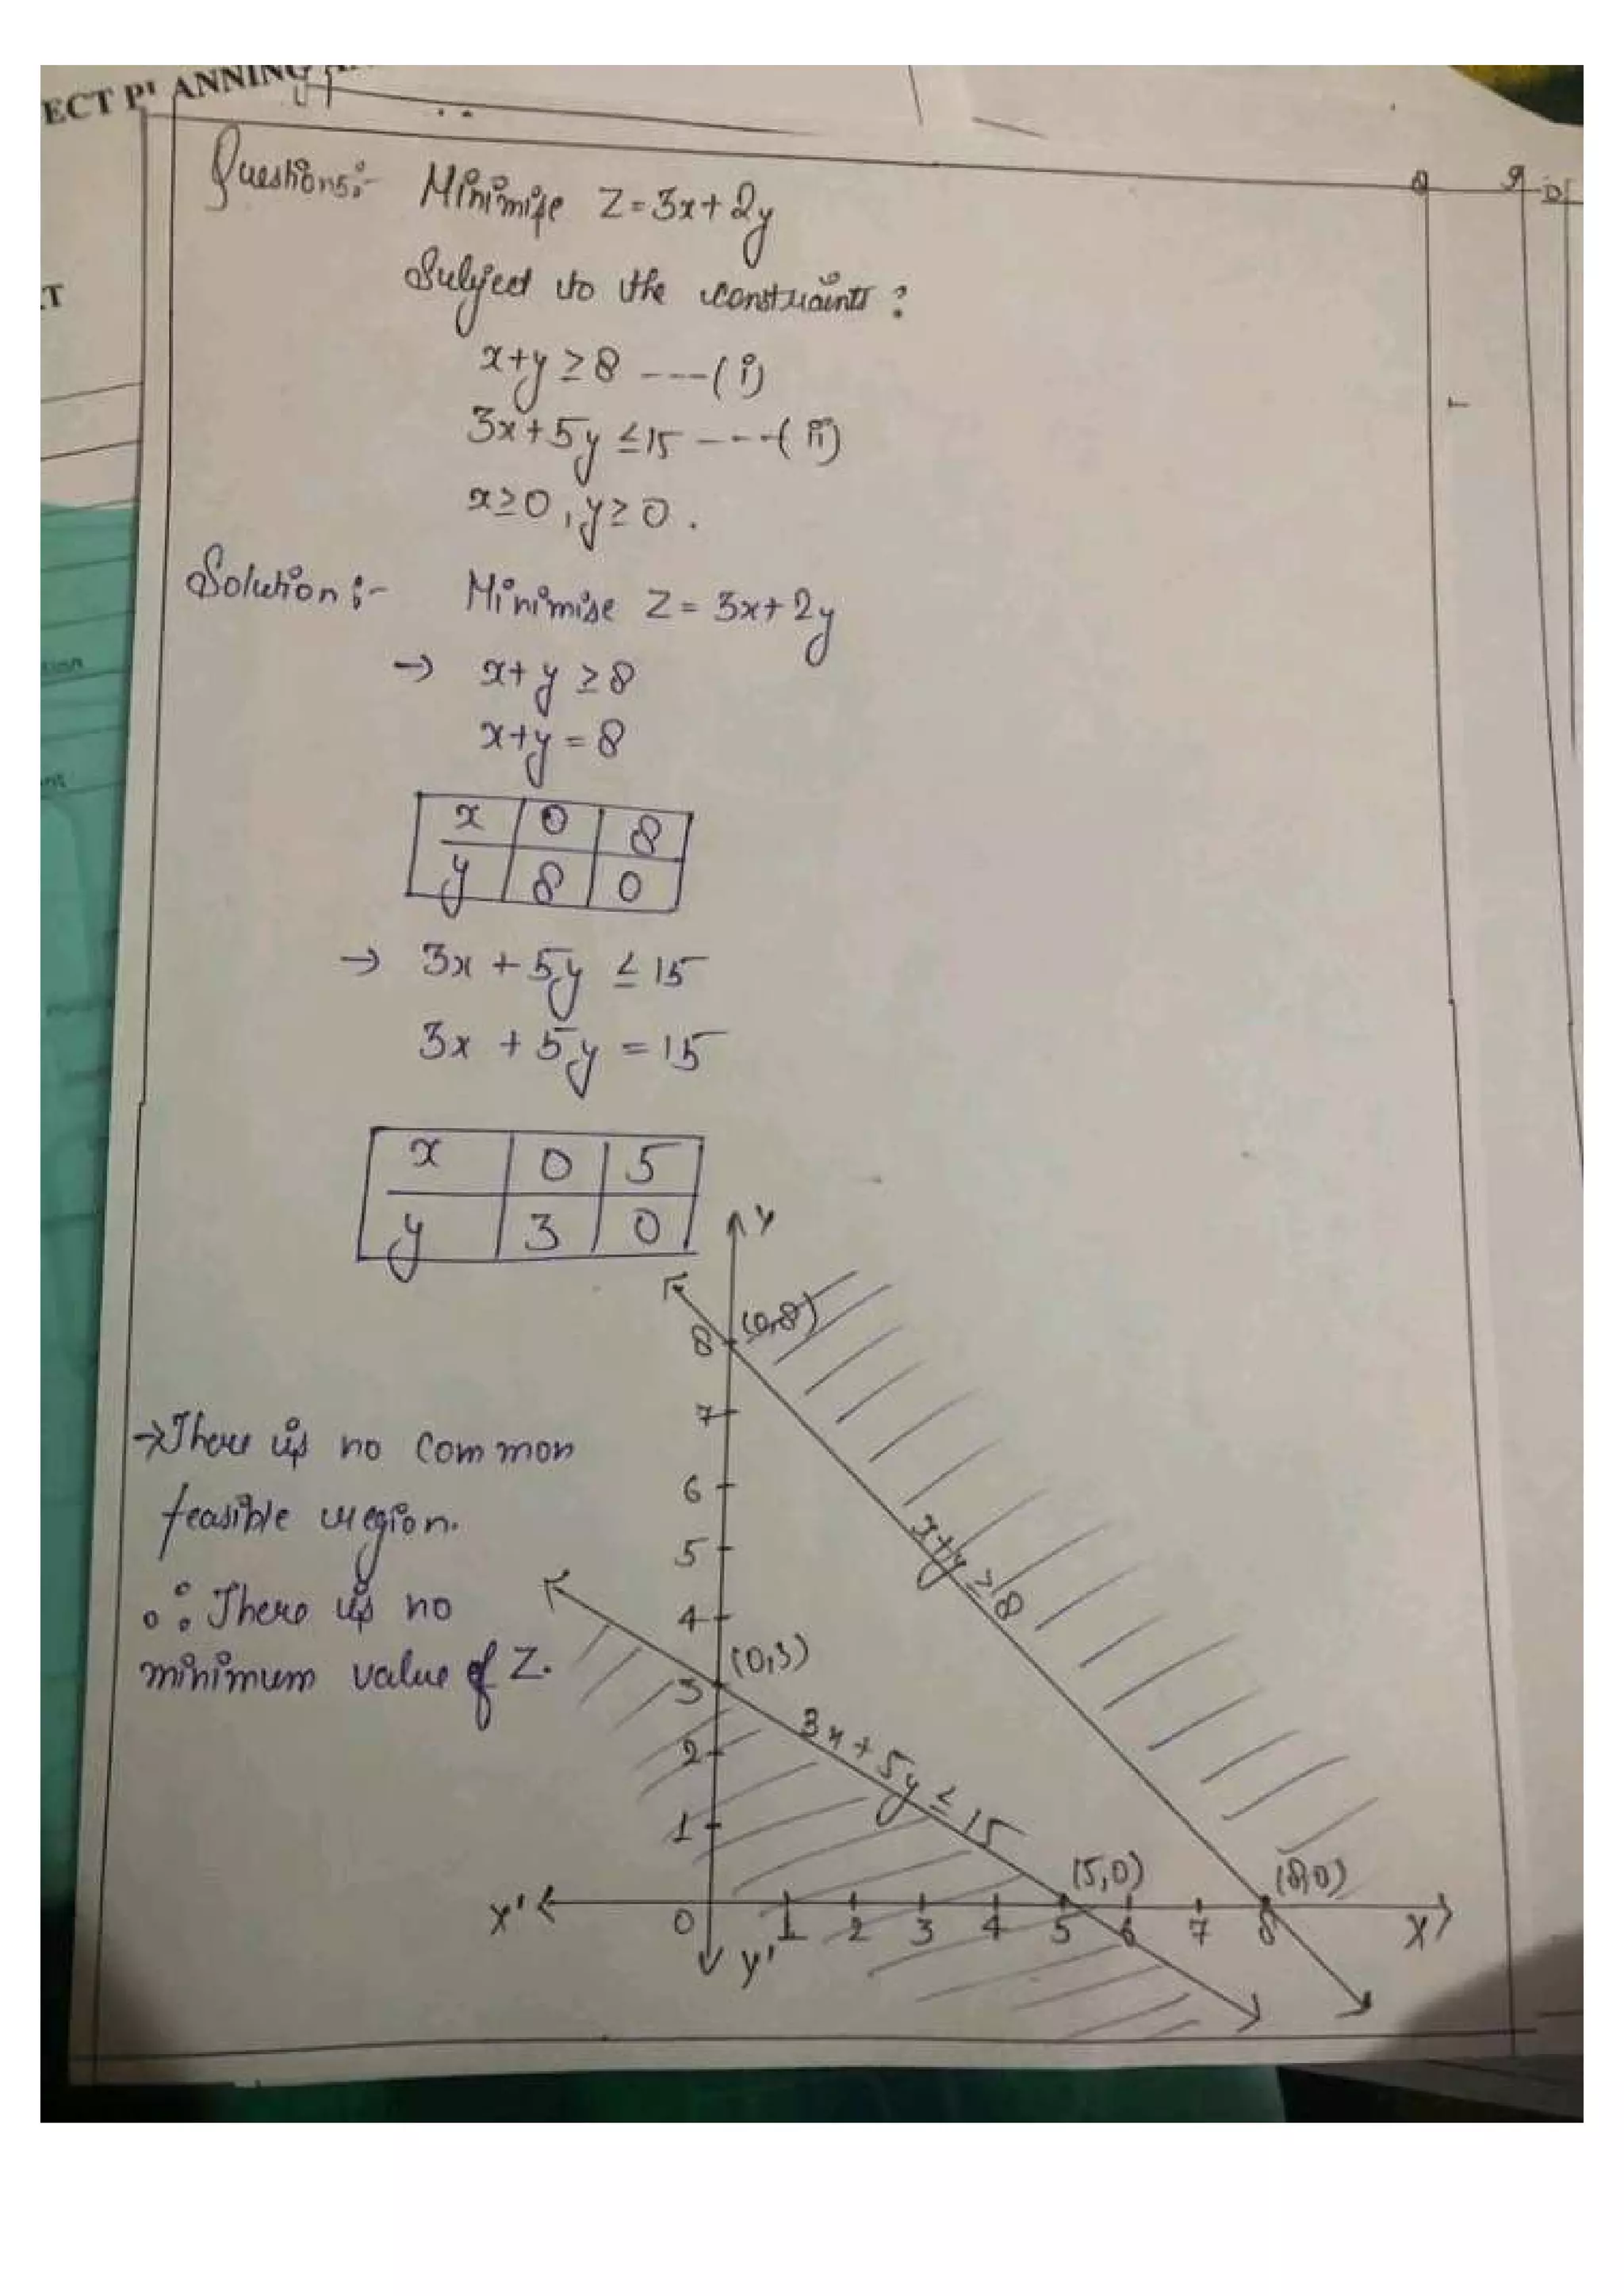 ECT PLANNING
T
Questions:- Minimize Z=3x+2y
Subject to the constraints:
x+y ≥ 8 ----(i)
3x+5y ≤ 15 ----(ii)
x≥0, y≥0.
Solution:- Minimise Z = 3x+2y
→ x+y ≥ 8
x+y = 8
x 0 8
y 8 0
→ 3x + 5y ≤ 15
3x + 5y = 15
x 0 5
y 3 0
→There is no common
feasible region.
∴ There is no
minimum value of Z.
Y
(0,8)
8
7
6
5
4
3
2
1
x+y ≥ 8
(0,3)
3x + 5y ≤ 15
(5,0)
(8,0)
X' 0 1 2 3 4 5 6 7 8 X
Y'